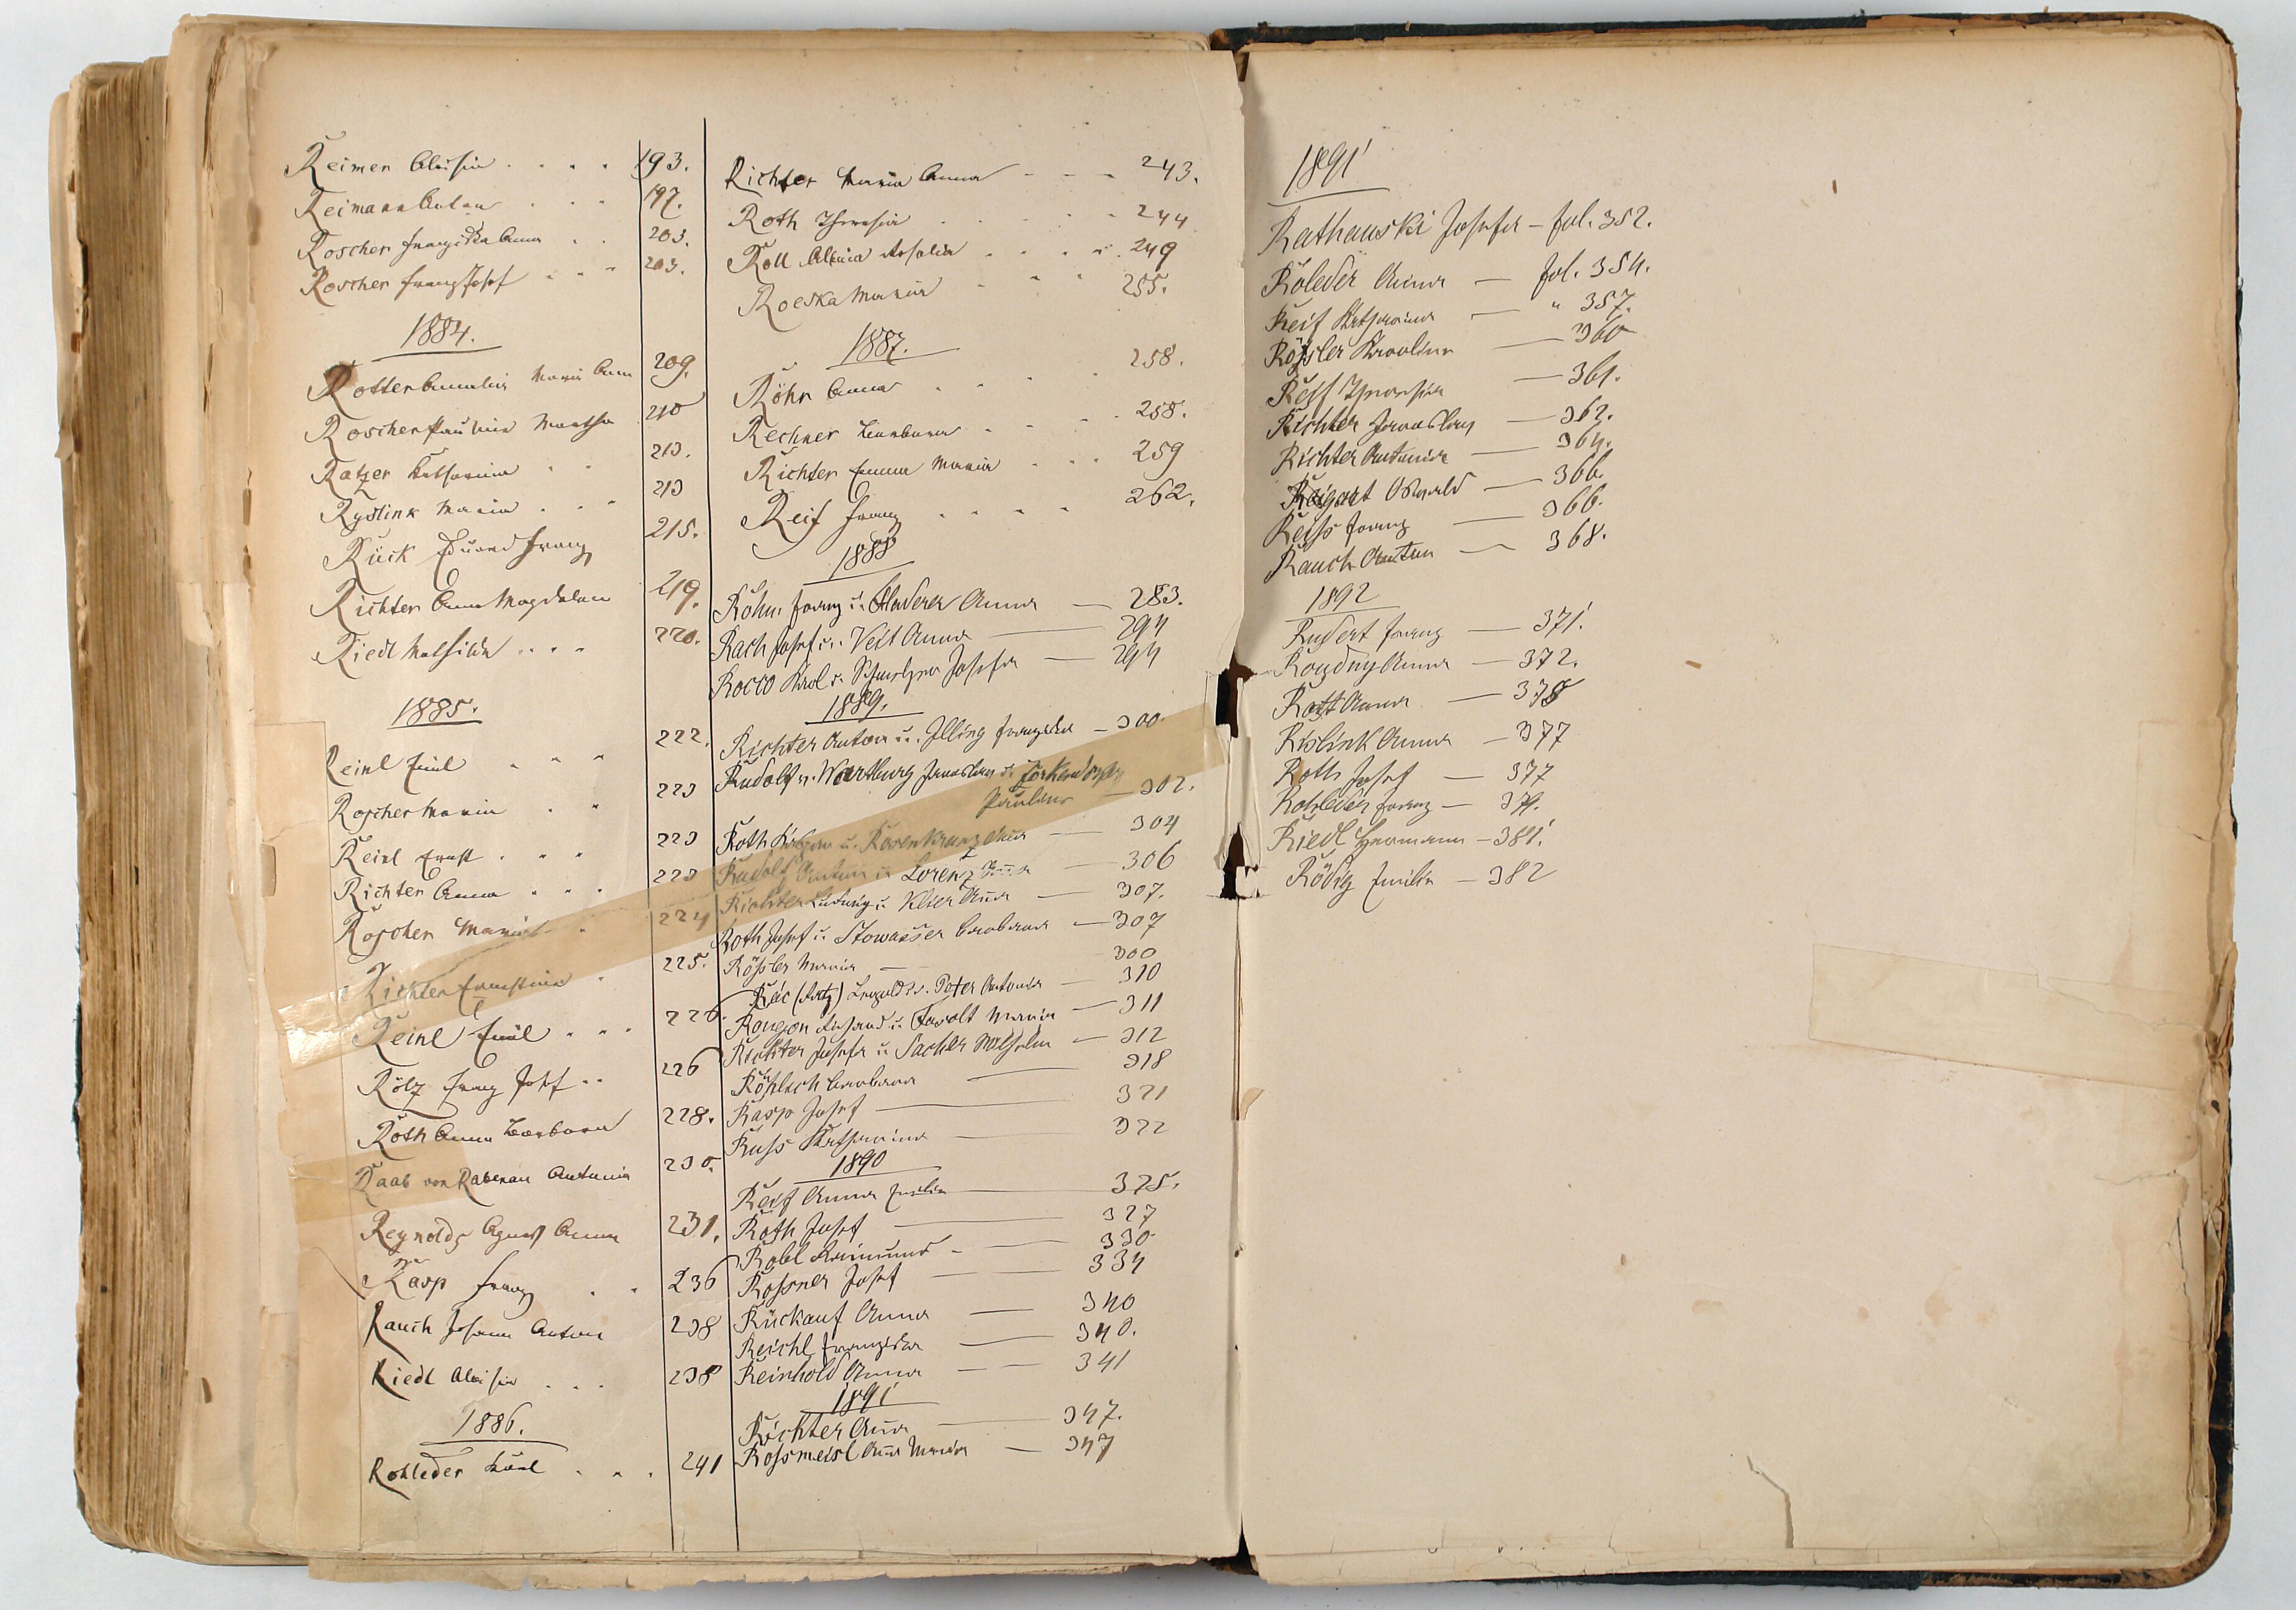 Reimer Aloisia . . . . 193.
Reimann Anton . . . 197.
Roscher Franziska Anna . . 203.
Roscher Franz Josef . . . 203.
1884.
Rotter Amalia Maria Anna 209.
Roscher Paulina Martha 210
Ratzer Katharina . . 213.
Rystink Maria . . . 213
Rück Eduard Franz 215.
Richter Anna Magdalena 219.
Riedl Mathilde . . . 220.
1885.
Reinl Emil . . . 222.
Roscher Maria . . 223
Reinl Ernst . . . 223
Richter Anna . . . 223
Roscher Maria . 224
Richter Ernestine . 225.
Reinl Emil . . . 226.
Rölz Franz Josef . . 226
Roth Anna Barbara 228.
Raab von Rabenau Antonia 230.
Reynolds Agnes Anna 231.
Rasp Franz . . 236
Rauch Johann Anton 238
Riedl Aloisia . . . 238
1886.
Rohleder Karl . . . 241
Richter Maria Anna - - - 243.
Roth Theresia . . . . . 244
Roll Rosalia . . . . 249
Roeska Maria - - - 255.
1887.
Röhr Anna . . . . 258.
Rechner Barbara - - - . 258.
Richter Emma Maria . . . 259
Reif Franz . . . . . 262.
1888
Röhm Franz u. Anna — 283.
Rach Josef u. Veit Anna — 294
Rocco Karl u. Josefa — 294
1889.
Richter Anton u. Illing Franziska — 300.
Rudolf v. Wartburg Jaroslav u.
Pauline — 302.
Roth u. Rosenkranz Anna — 304
Rudolf Anton u. Lorenz Anna — 306
Richter Ludwig u. Klier Anna — 307.
Roth Josef u. Stowasser Barbara — 307
Rößler Maria — 300
Rác (Ratz) Leopold u. Peter Antonia — 310
Rougon Richard u. Maria — 311
Richter Josefa u. Sacher Wilhelm — 312
Röhlich Barbara — 318
Rasp Josef — 321
Russ Katharina — 322
1890
Reif Anna Emilia — 325.
Roth Josef — 327
Robl Raimund — 330
Rossner Josef — 334
Rückauf Anna — 340
Reichl Franziska — 340.
Reinhold Anna — 341
1891
Richter Anna — 347.
Rossmeisl Anna Maria — 347
1891
Rathauski Josefa — fol. 352.
Roleder Anna — fol. 354.
Reif Katharina — " 357.
Rößler Karoline — 360
Reif Theresia — 361.
Richter Jaroslav — 362.
Richter Antonia — 364.
Oswald — 366.
Reiss Franz — 366.
Rauch Anton — 368.
1892
Rudert Franz — 371.
Rouzdny Anna — 372.
Rott Anna — 378
Rislink Anna — 377
Roth Josef — 377
Rohleder Franz — 379.
Riedl Hermann — 381.
Rödig Emilie — 382